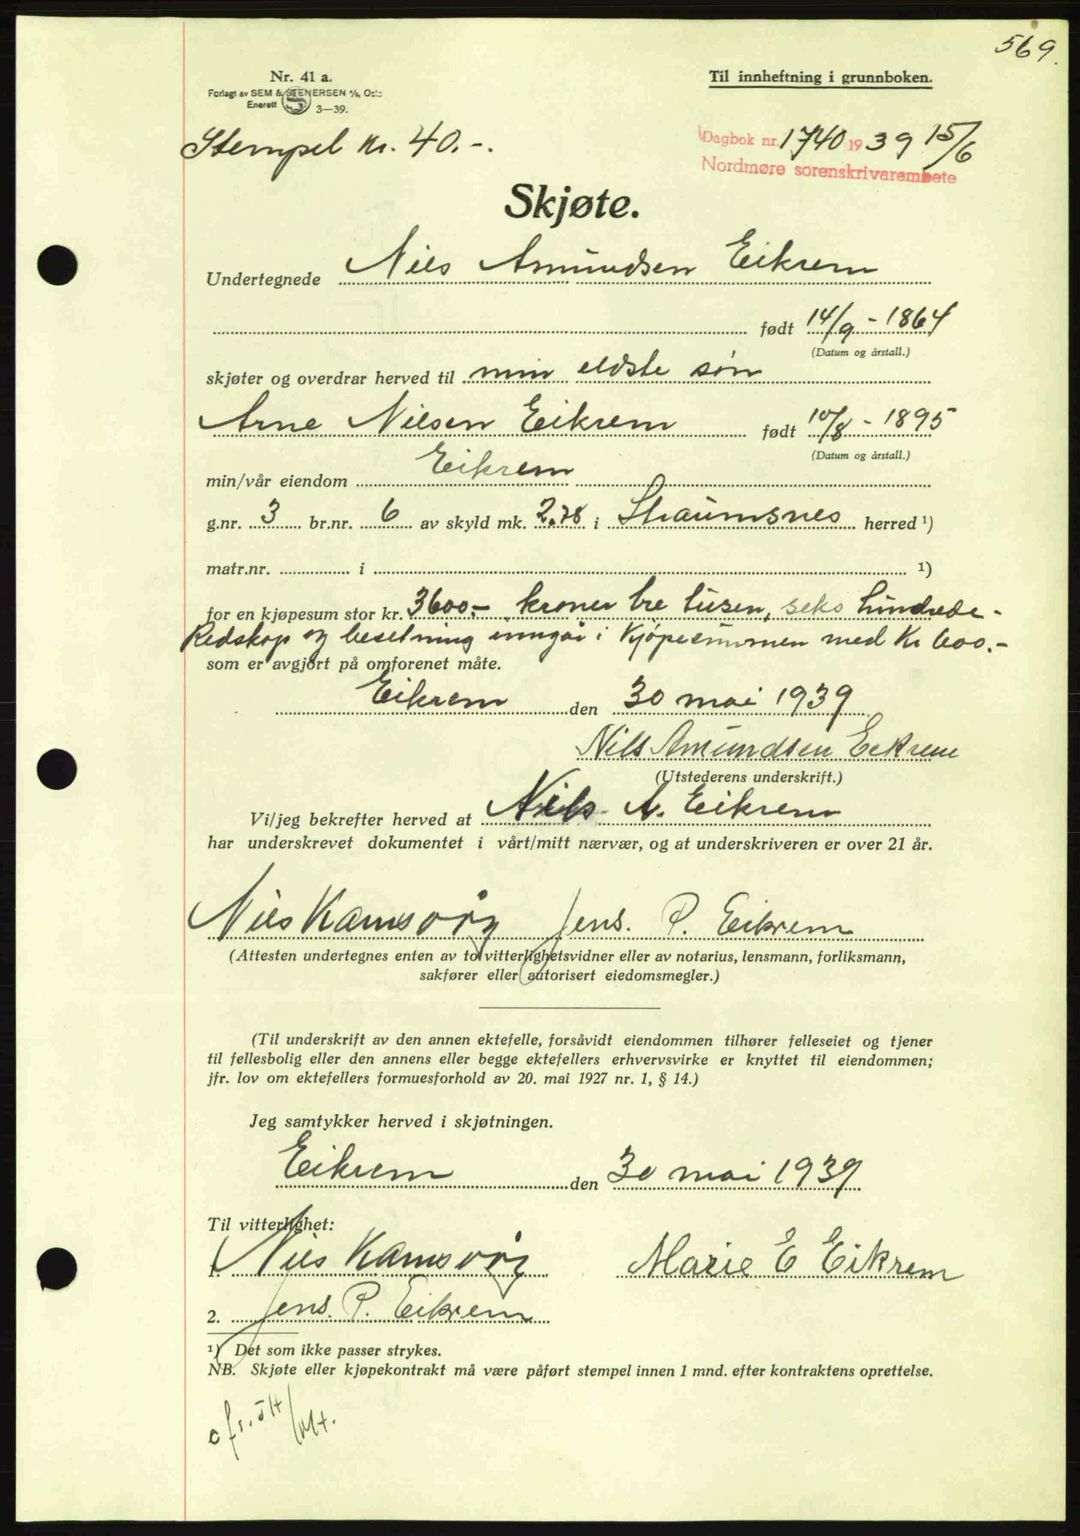 569.
Nr. 41 a.
Forlagt av SEM & STENERSEN A/S, Oslo
Enerett S 3—39.
Til innheftning i grunnboken.
Stempel kr. 40.-.
Dagbok nr. 1740 1939 15/6
Nordmøre sorenskrivarembete
Skjøte.
Undertegnede Nils Amundsen Eikrem
født 14/9 - 1864
(Datum og årstall.)
skjøter og overdrar herved til min eldste søn
Arne Nilsen Eikrem født 10/8 - 1895
(Datum og årstall.)
min/vår eiendom Eikrem
g.nr. 3 br.nr. 6 av skyld mk. 2.78 i Straumsnes herred ¹)
matr.nr. i ¹)
for en kjøpesum stor kr. 3600.- kroner tre tusen, seks hundrede -
Redskap og besetning inngår i Kjøpesummen med Kr 600.-
som er avgjort på omforenet måte.
Eikrem den 30 mai 1939
Nils Amundsen Eikrem
(Utstederens underskrift.)
Vi/jeg bekrefter herved at Nils A. Eikrem
har underskrevet dokumentet i vårt/mitt nærvær, og at underskriveren er over 21 år.
Nils Kamsvåg Jens. P. Eikrem
(Attesten undertegnes enten av to vitterlighetsvidner eller av notarius, lensmann, forliksmann,
sakfører eller autorisert eiedomsmegler.)
(Til underskrift av den annen ektefelle, forsåvidt eiendommen tilhører felleseiet og tjener
til fellesbolig eller den annens eller begge ektefellers erhvervsvirke er knyttet til eiendommen;
jfr. lov om ektefellers formuesforhold av 20. mai 1927 nr. 1, § 14.)
Jeg samtykker herved i skjøtningen.
Eikrem den 30 mai 1939
Til vitterlighet:
1. Nils Kamsvåg Marie E Eikrem
2. Jens. P. Eikrem
¹) Det som ikke passer strykes.
NB. Skjøte eller kjøpekontrakt må være påført stempel innen 1 mnd. efter kontraktens oprettelse.